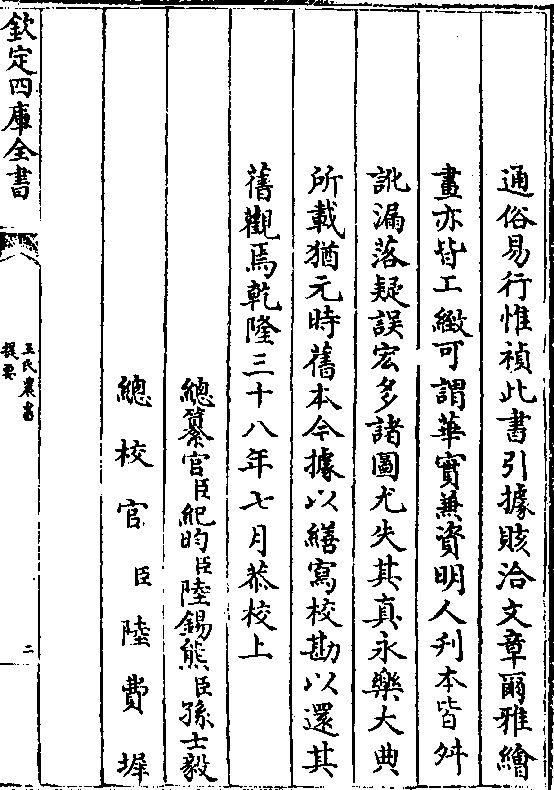 通俗易行惟禎此書引據賅洽文章爾雅繪
畫亦皆工緻可謂華實兼資明人刋本皆舛
訛漏落疑誤宏多諸圖尤失其真永樂大典
所載猶元時舊本今據以繕寫校勘以還其
舊觀焉乾隆三十八年七月恭校上
總纂官臣紀昀臣陸錫熊臣孫士毅
總校官臣陸費墀
欽定四庫全書
王氏農書
提要
二